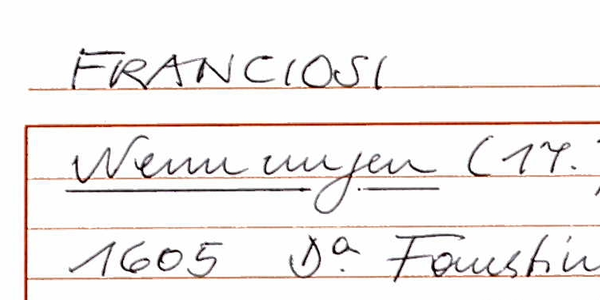 FRANCIOSI
Nennungen (17.)
1605 Dª Faustin